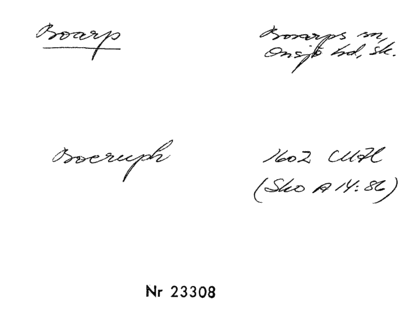 Boarp
Boarps sn,
Onsjö hd, sk.
Bocruph
1602 LUÄL
(Sko A 14:86)
Nr 23308